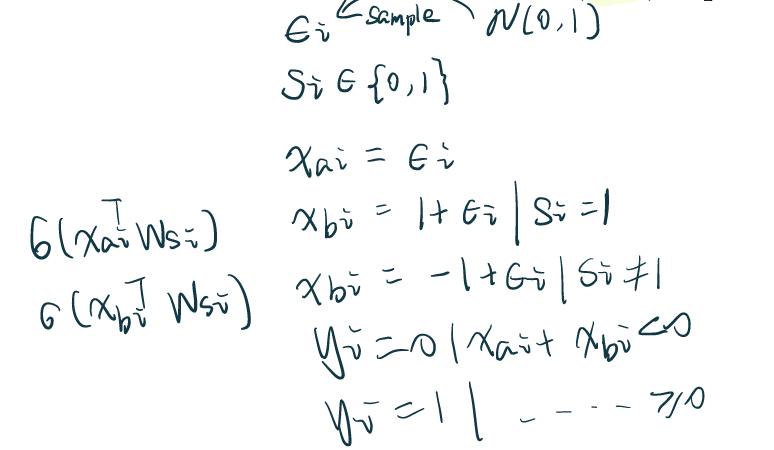 ϵi ← sample N(0,1)
Si ∈ {0,1}
xai = ϵi
xbi = 1+ϵi | Si=1
xbi = -1+ϵi | Si≠1
yi=0 | xai+ xbi<0
yi=1 | ---- ≥0
σ(xai^T Wsi)
σ(xbi^T Wsi)